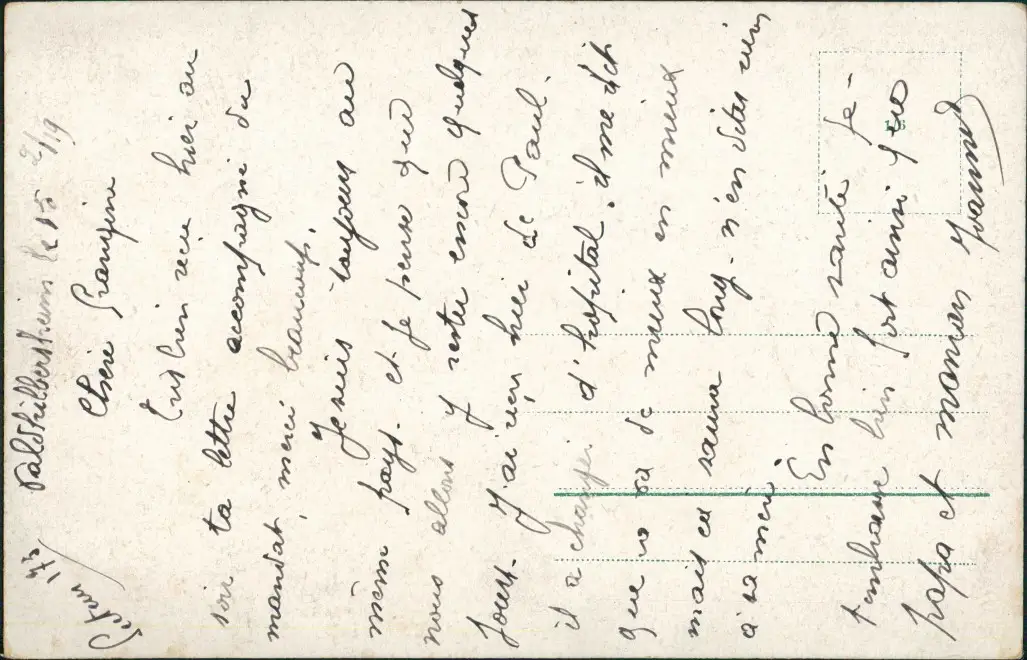 Waldhilbersheim le 15 2/19
Chère Françine
hier au
soir ta lettre accompagné du
mandat, merci beaucoup.
Je suis toujours au
même pays. et je pense que
nous allons y rester encore quelques
Jours. J'ai reçu hier de Paul.
il a changer d'hopital. il me dit
que va de mieux en mieux
mais en saura long. n'en dites rien
à sa mère.
En bonne santé je
t'embrasse bien fort ainsi que
papa et maman